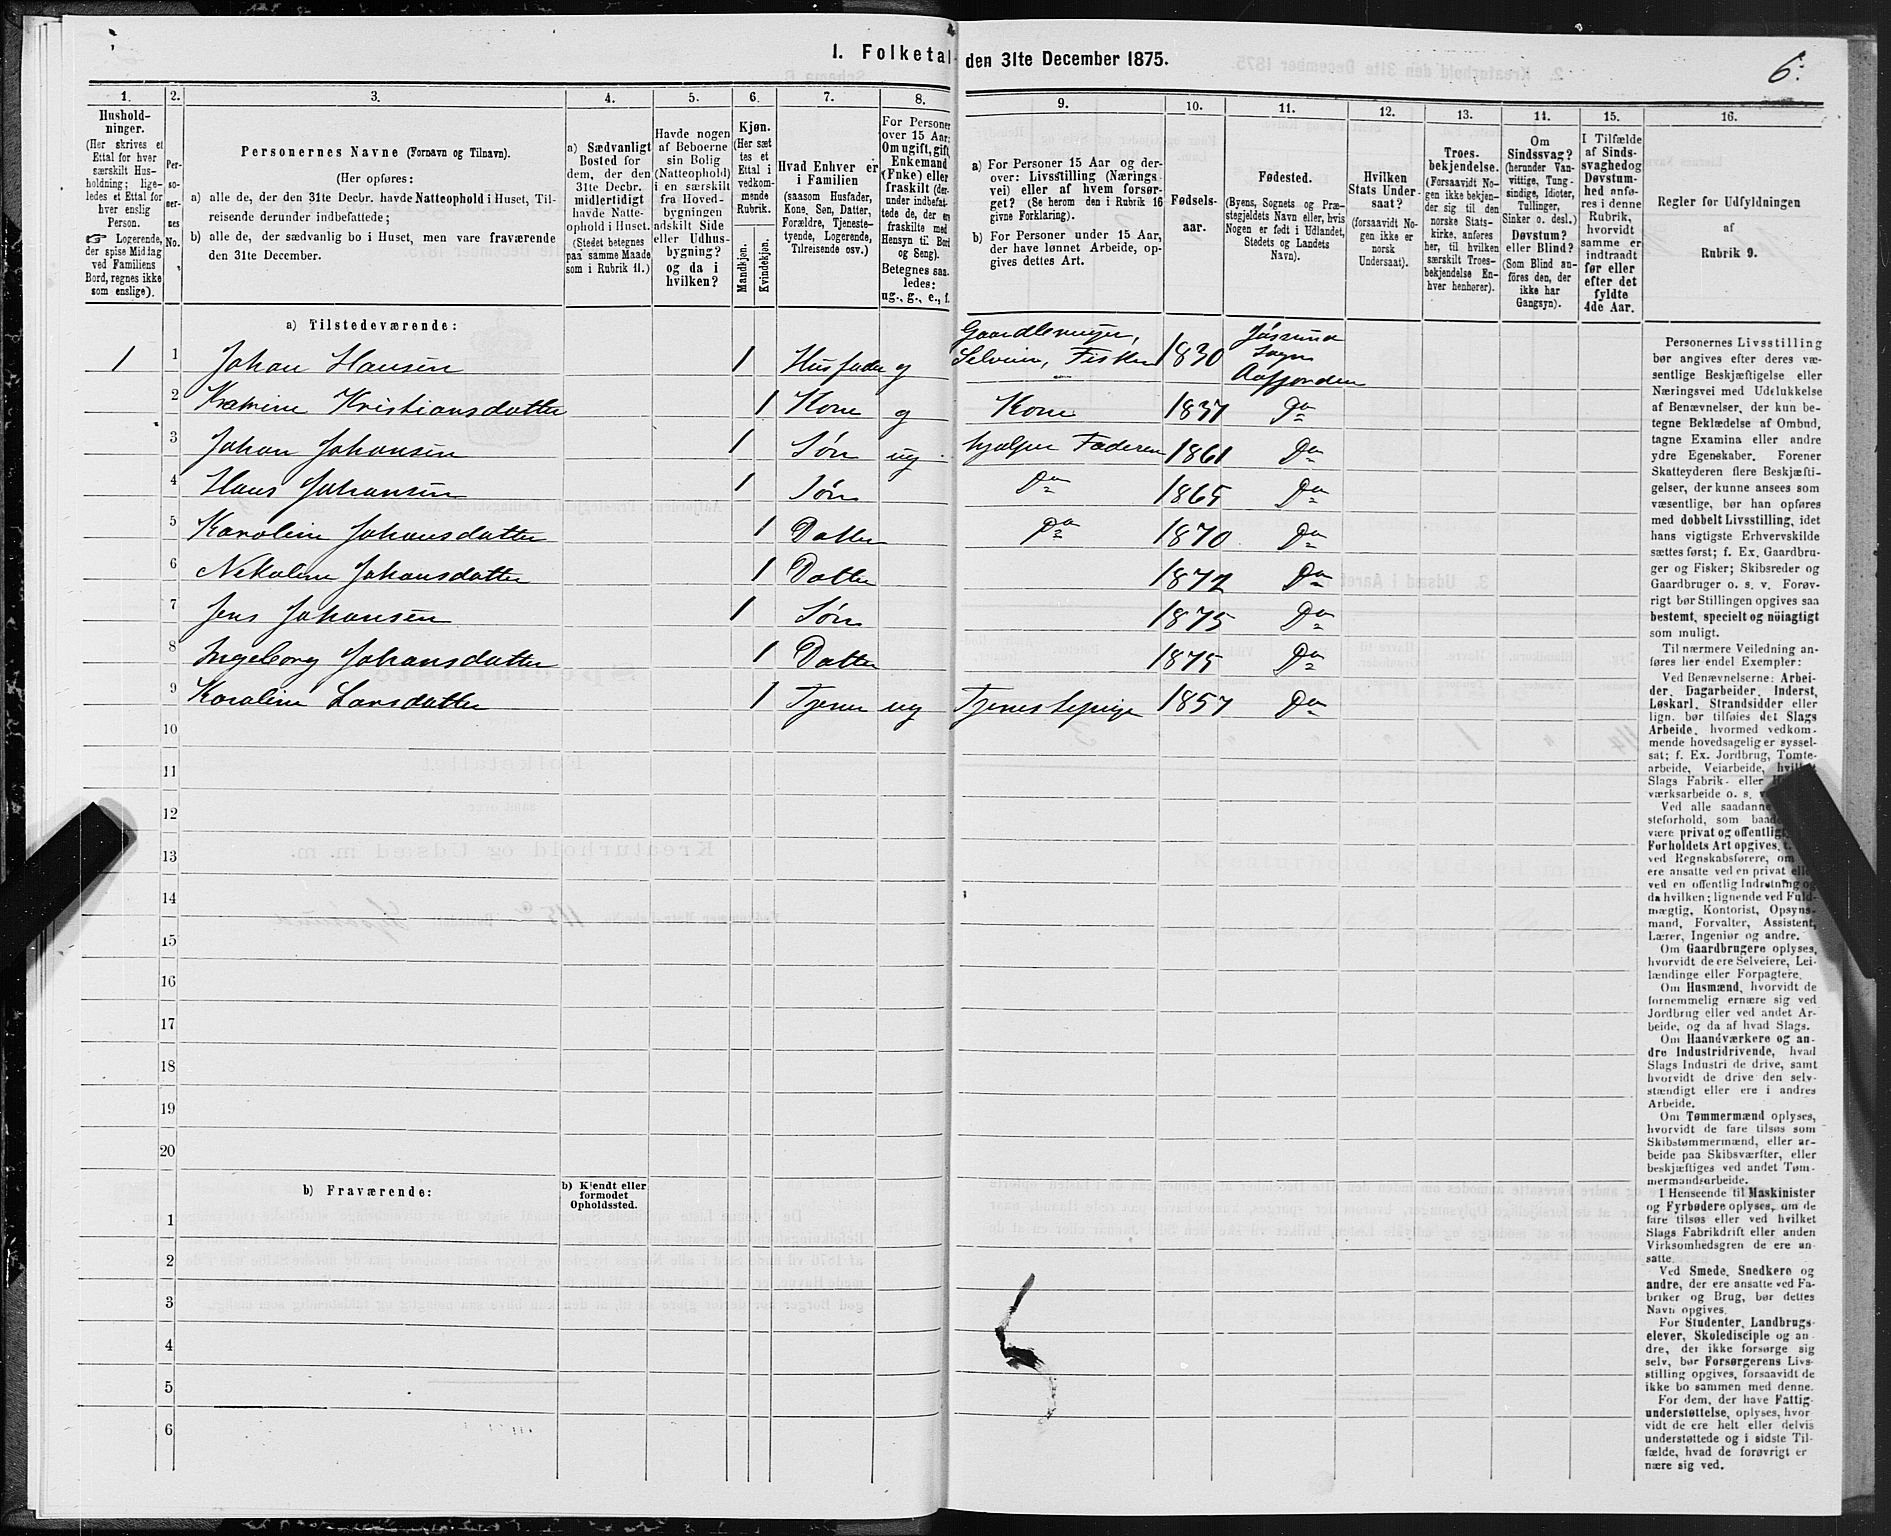 1. Folketal den 31te December 1875.
6.
1. 2. 3. 4. 5. 6. 7. 8. 9. 10. 11. 12. 13. 14. 15. 16.
Hushold-
ninger.
(Her skrives et
Ettal for hver
særskilt Hus-
holdning; lige-
ledes et Ettal for
hver enslig
Person.
☞ Logerende,
der spise Middag
ved Familiens
Bord, regnes ikke
som enslige).
Per-
so-
ner-
nes
No.
Personernes Navne (Fornavn og Tilnavn).
(Her opføres:
a) alle de, der den 31te Decbr. havde Natteophold i Huset, Til-
reisende derunder indbefattede;
b) alle de, der sædvanlig bo i Huset, men vare fraværende
den 31te December.
a) Sædvanligt
Bosted for
dem, der den
31te Decbr.
midlertidigt
havde Natte-
ophold i Huset.
(Stedet betegnes
paa samme Maade
som i Rubrik 11.)
Havde nogen
af Beboerne
sin Bolig
(Natteophold)
i en særskilt
fra Hoved-
bygningen
adskilt Side
eller Udhus-
bygning?
og da i
hvilken?
Kjøn.
(Her sæt-
tes et
Ettal i
vedkom-
mende
Rubrik.
Mandkjøn.
Kvindekjøn.
Hvad Enhver er
i Familien
(saasom Husfader,
Kone, Søn, Datter,
Forældre, Tjeneste-
tyende, Logerende,
Tilreisende osv.)
For Personer
over 15 Aar:
Om ugift, gift,
Enkemand
(Enke) eller
fraskilt (der-
under indbefat-
tede de, der ere
fraskilte med
Hensyn til Bord
og Seng).
Betegnes saa-
ledes:
ug., g., e., f.
a) For Personer 15 Aar og der-
over: Livsstilling (Nærings-
vei) eller af hvem forsør-
get? (Se herom den i Rubrik 16
givne Forklaring).
b) For Personer under 15 Aar,
der have lønnet Arbeide, op-
gives dettes Art.
Fødsels-
aar.
Fødested.
(Byens, Sognets og Præ-
stegjeldets Navn eller, hvis
Nogen er født i Udlandet,
Stedets og Landets
Navn).
Hvilken
Stats Under-
saat?
(forsaavidt No-
gen ikke er
norsk
Undersaat).
Troes-
bekjendelse.
(Forsaavidt No-
gen ikke bekjen-
der sig til den
norske Stats-
kirke, anføres
her, til hvilken
særskilt Troes-
bekjendelse En-
hver henhører).
Om
Sindssvag?
(herunder Van-
vittige, Tung-
sindige, Idioter,
Tullinger,
Sinker o. desl.)
Døvstum?
eller Blind?
(Som Blind an-
føres den, der
ikke har
Gangsyn).
I Tilfælde
af Sinds-
svaghed og
Døvstum-
hed anfø-
res i denne
Rubrik,
hvorvidt
samme er
indtraadt
før eller
efter det
fyldte
4de Aar.
Regler for Udfyldningen
af
Rubrik 9.
a) Tilstedeværende:
Gaardbruger, Jøssund
1 1 Johan Hansen 1 Husfader g Selveier, Fisker 1830 Sogn
Aafjorden
2 Katrine Kristiansdatter 1 Kone g Kone 1837 Do
3 Johan Johansen 1 Søn ug hjælper Faderen 1861 Do
4 Hans Johansen 1 Søn Do 1865 Do
5 Karoline Johansdatter 1 Datter Do 1870 Do
6 Nekoline Johansdatter 1 Datter 1872 Do
7 Jens Johansen 1 Søn 1875 Do
8 Ingeborg Johansdatter 1 Datter 1875 Do
9 Karoline Larsdatter 1 Tjener ug Tjenestepige 1857 Do
10
11
12
13
14
15
16
17
18
19
20
b) Fraværende:
b) Kjendt eller
formodet
Opholdssted.
1
2
3
4
5
6
Personernes Livsstilling
bør angives efter deres væ-
sentlige Beskjæftigelse eller
Næringsvei med Udelukkelse
af Benævnelser, der kun be-
tegne Beklædelse af Ombud,
tagne Examina eller andre
ydre Egenskaber. Forener
Skatteyderen flere Beskjæfti-
gelser, der kunne ansees som
væsentlige, bør han opføres
med dobbelt Livsstilling, idet
hans vigtigste Erhvervskilde
sættes først; f. Ex. Gaardbru-
ger og Fisker; Skibsreder og
Gaardbruger o. s. v. Forøv-
rigt bør Stillingen opgives saa
bestemt, specielt og nöiagtigt
som muligt.
Til nærmere Veiledning an-
føres her endel Exempler:
Ved Benævnelserne: Arbei-
der, Dagarbeider, Inderst,
Løskarl, Strandsidder eller
lign. bør tilføies det Slags
Arbeide, hvormed vedkom-
mende hovedsagelig er syssel-
sat; f. Ex. Jordbrug, Tomte-
arbeide, Veiarbeide,
Slags Fabrik- eller
værksarbeide o. s.
Ved alle saadanne
steforhold, som
være privat og offentligt,
Forholdets Art opgives,
ved Regnskabsførere, om
ere ansatte ved en privat
ved en offentlig Indretning og
da hvilken; lignende ved Fuld-
mægtig, Kontorist, Opsyns-
mand, Forvalter, Assistent,
Lærer, Ingeniør og andre.
Om Gaardbrugere oplyses,
hvorvidt de ere Selveiere, Lei-
lændinge eller Forpagtere.
Om Husmænd, hvorvidt de
fornemmelig ernære sig ved
Jordbrug eller ved andet Ar-
beide, og da af hvad Slags.
Om Haandværkere og an-
dre Industridrivende, hvad
Slags Industri de drive, samt
hvorvidt de drive den selv-
stændigt eller ere i andres
Arbeide.
Om Tømmermænd oplyses,
hvorvidt de fare tilsøs som
Skibstømmermænd, eller ar-
beide paa Skibsværfter, eller
beskjæftiges ved andet Tøm-
mermandsarbeide.
I Henseende til Maskinister
og Fyrbødere oplyses, om de
fare tilsøs eller ved hvilket
Slags Fabrikdrift eller anden
Virksomhedsgren de ere an-
satte.
Ved Smede, Snedkere og
andre, der ere ansatte ved Fa-
briker og Brug, bør dettes
Navn opgives.
For Studenter, Landbrugs-
elever, Skoledisciple og an-
dre, der ikke forsørge sig
selv, bør Forsørgerens Livs-
stilling opgives, forsaavidt de
ikke bo sammen med denne.
For dem, der have Fattig-
understøttelse, oplyses, hvor-
vidt de ere helt eller delvis
understøttede og i sidste Til-
fælde, hvad de forøvrigt er-
nære sig ved.